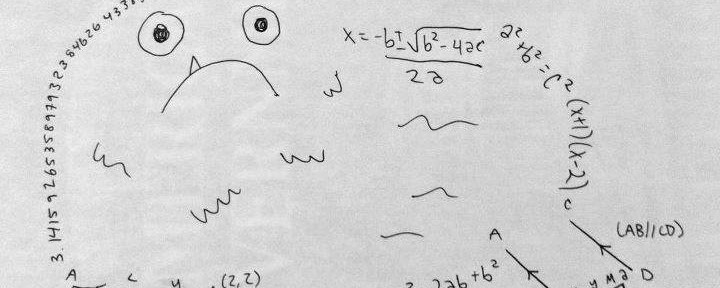 3.141592653589793238462643383
x = -b ± √b² - 4ac
2a
a² + b² = c²
(x+1)(x-2)
C
(AB//CD)
A
D
2ab + b²
A
(2,2)